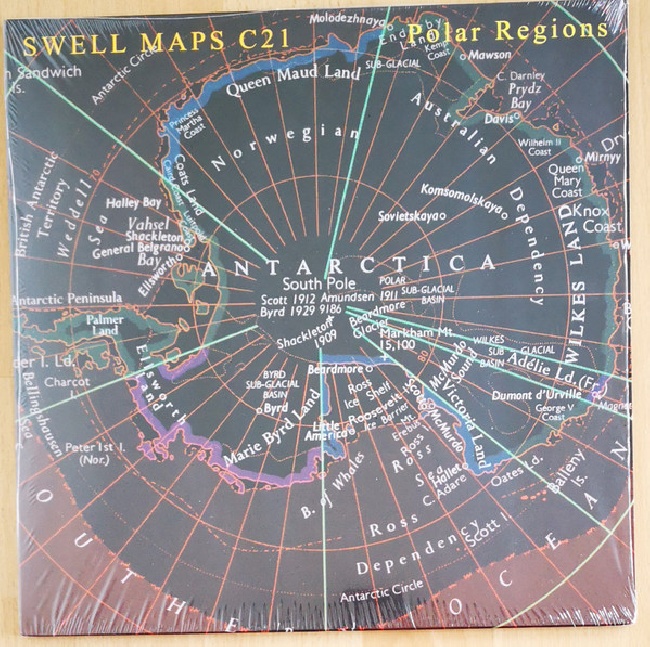 SWELL MAPS C21
Polar Regions
Molodezhnaya
Enderby
Land
Kemp
Coast
Mawson
SUB-GLACIAL
Antarctic Circle
Sandwich
Is.
Queen Maud Land
C. Darnley
Prydz
Bay
Davis
Princess
Martha
Coast
Norwegian
Australian
Dependency
Wilhelm II
Coast
Mirnyy
Queen
Mary
Coast
Knox
Coast
British Antarctic
Territory
Weddell
Sea
Coats Land
Halley Bay
Vahsel
Shackleton
General Belgrano
Bay
Ellsworth
Komsomolskaya
Sovietskaya
WILKES LAND
ANTARCTICA
South Pole
Scott 1912 Amundsen 1911
Byrd 1929 9186
POLAR
SUB-GLACIAL
BASIN
Antarctic Peninsula
Palmer
Land
Shackleton
1909
Beardmore
Glacier
Markham Mt.
15,100
WILKES
SUB GLACIAL
BASIN
Adélie Ld.(Fr.
Dumont d'Urville
George V
Coast
Charcot
I.
Bellingshausen
Sea
Peter Ist I.
(Nor.)
Ellsworth
Land
BYRD
SUB-GLACIAL
BASIN
Byrd
Marie Byrd Land
Beardmore
Little
America
Ross
Ice Shelf
Roosevelt I.
Ice Barrier
Mt.
Erebus
McMurdo
Sound
Scott
McMurdo
Victoria Land
Ross
Sea
Hallet
C. Adare
B. of Whales
Oates Ld.
Balleny
Is.
Scott I.
Ross
Dependency
Antarctic Circle
SOUTHERN
OCEAN